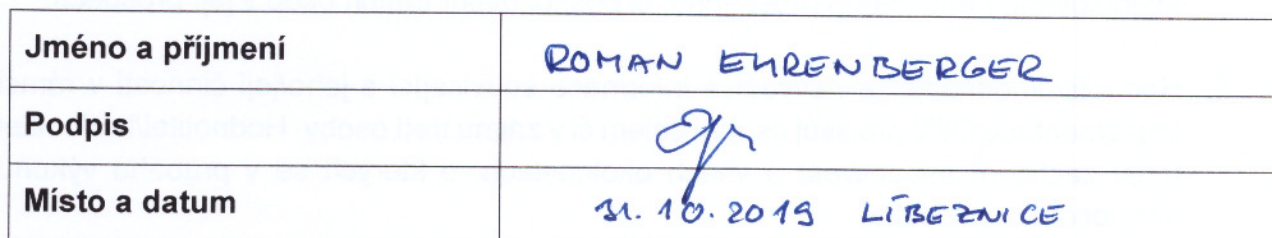 Jméno a příjmení ROMAN EHRENBERGER
Podpis
Místo a datum 31.10.2019 LÍBEZNICE